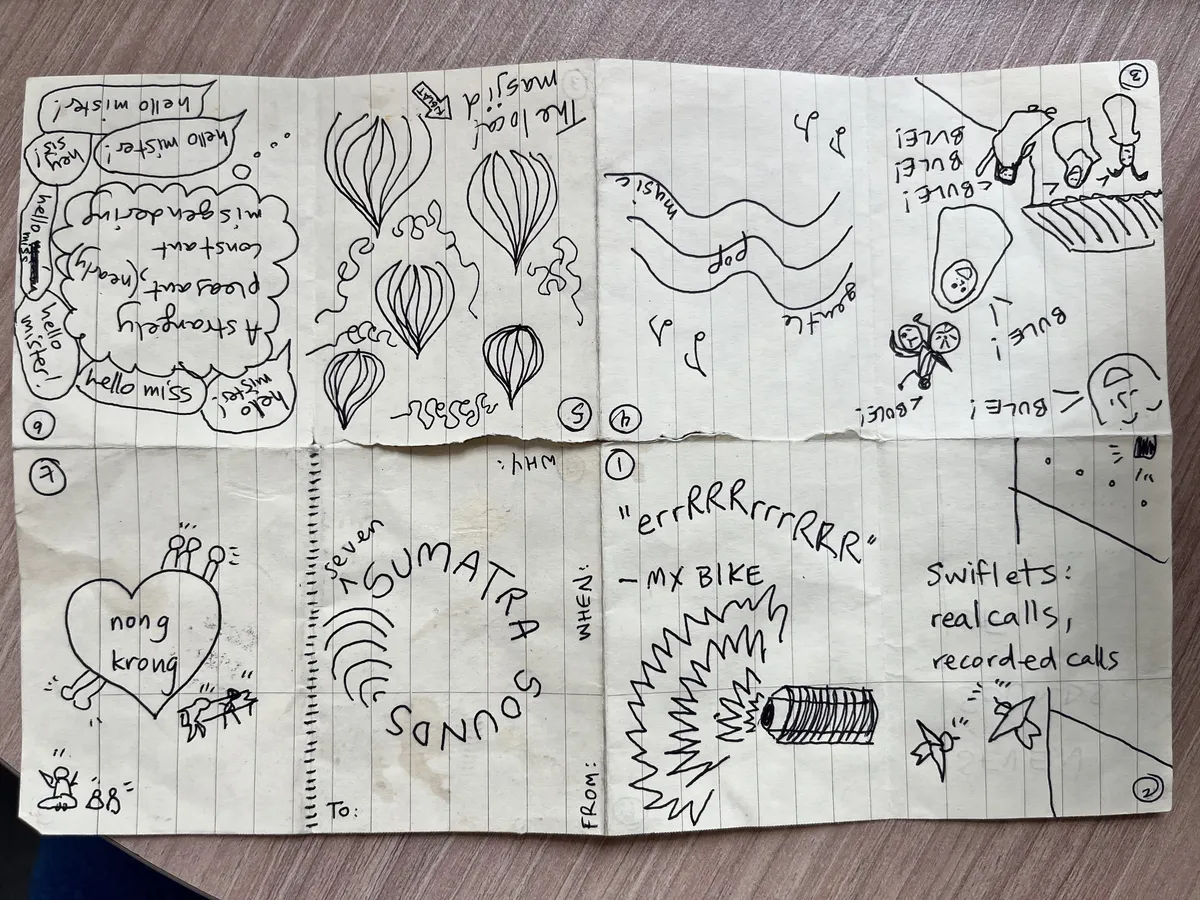 seven
SUMATRA SOUNDS
To:
FROM:
WHEN:
WHY:
1
"errRRRrrrRRR"
- MX BIKE
2
Swiflets:
real calls,
recorded calls
3
BULE!
BULE!
BULE!
BULE!
BULE!
BULE!
BULE!
4
gentle
pop
music
5
The local
masjid
6
hello
mister!
hello miss
hello
mister!
A strangely
pleasant, (nearly)
constant
misgendering
hello
miss
hey
sir!
hello mister!
hello mister!
7
nong
krong